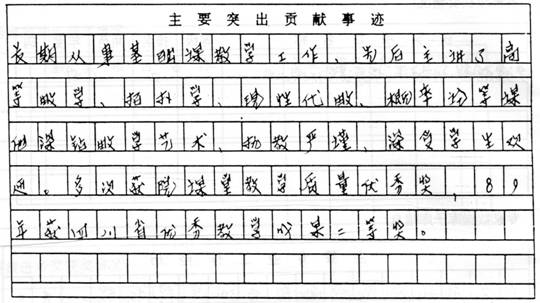 主要突出贡献事迹
长期从事基础课教学工作、先后主讲了高
等数学、拓扑学、线性代数、概率论等课
他深钻教学艺术、执教严谨、深受学生欢
迎。多次获院课堂教学质量优秀奖,89
年获四川省优秀教学成果二等奖。